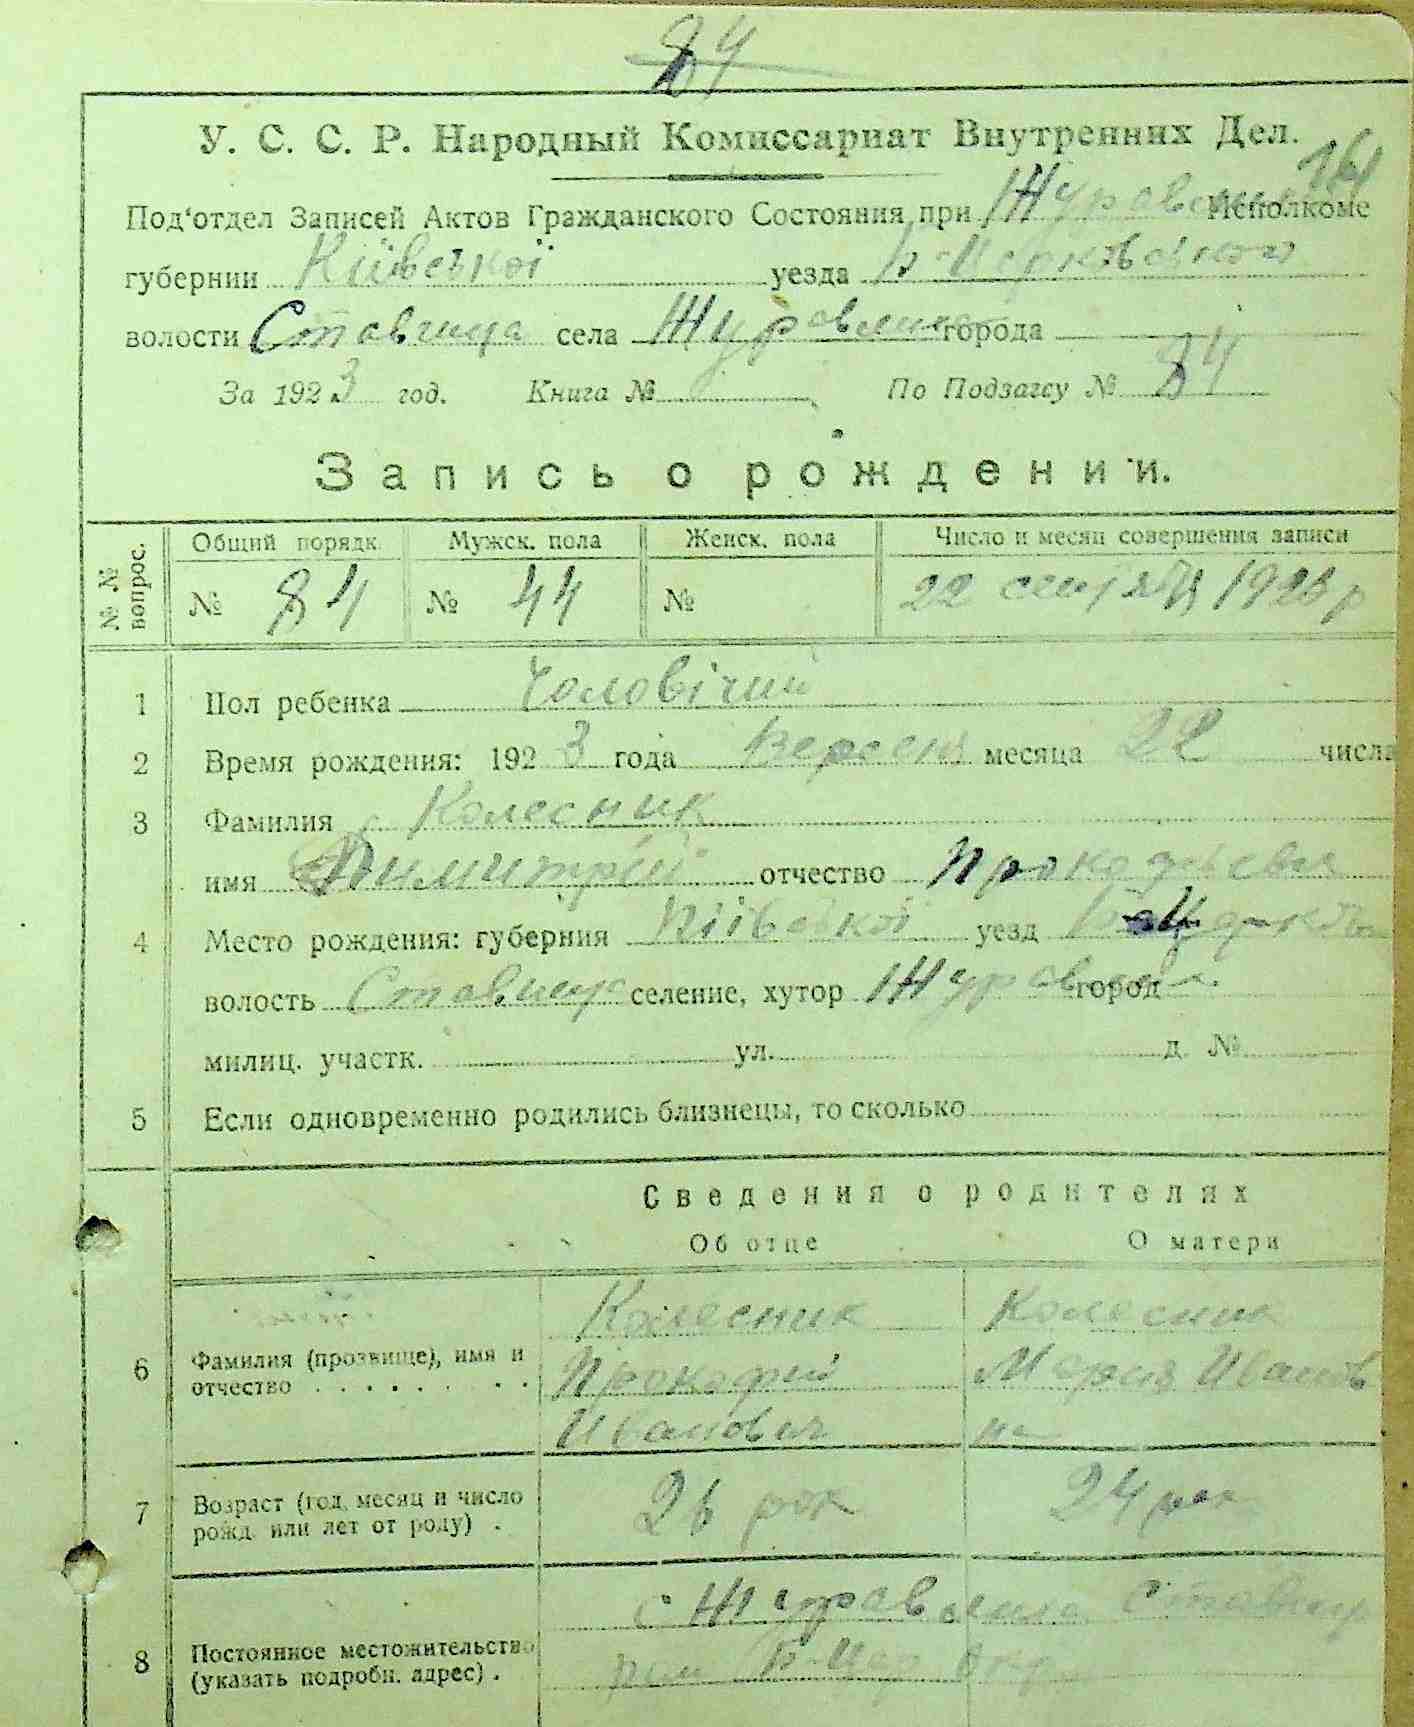 84
У. С. С. Р. Народный Комиссариат Внутренних Дел.
Под'отдел Записей Актов Гражданского Состояния при Исполкоме
губернии Київської уезда Б-Церковского
волости Ставища села Журавлиха города
За 1923 год. Книга № По Подзагсу № 84
Запись о рождении.
№ № вопрос. Общий порядк. Мужск. пола Женск. пола Число и месяц совершения записи
№ 84 № 44 № 22 1923 р
1 Пол ребенка Чоловічий
2 Время рождения: 1923 года Вересня месяца 22 числа
3 Фамилия Колесник
имя Димитрій отчество Прокофьевич
4 Место рождения: губерния Київської уезд
волость Ставище селение, хутор город
милиц. участк. ул. д. №
5 Если одновременно родились близнецы, то сколько
Сведения о родителях
Об отце О матери
6 Фамилия (прозвище), имя и отчество Колесник Прокофий Иванович Колесник Мария Ивановна
7 Возраст (год, месяц и число рожд. или лет от роду) 26 рок 24 рок
8 Постоянное местожительство (указать подробн. адрес) с Журавлиха